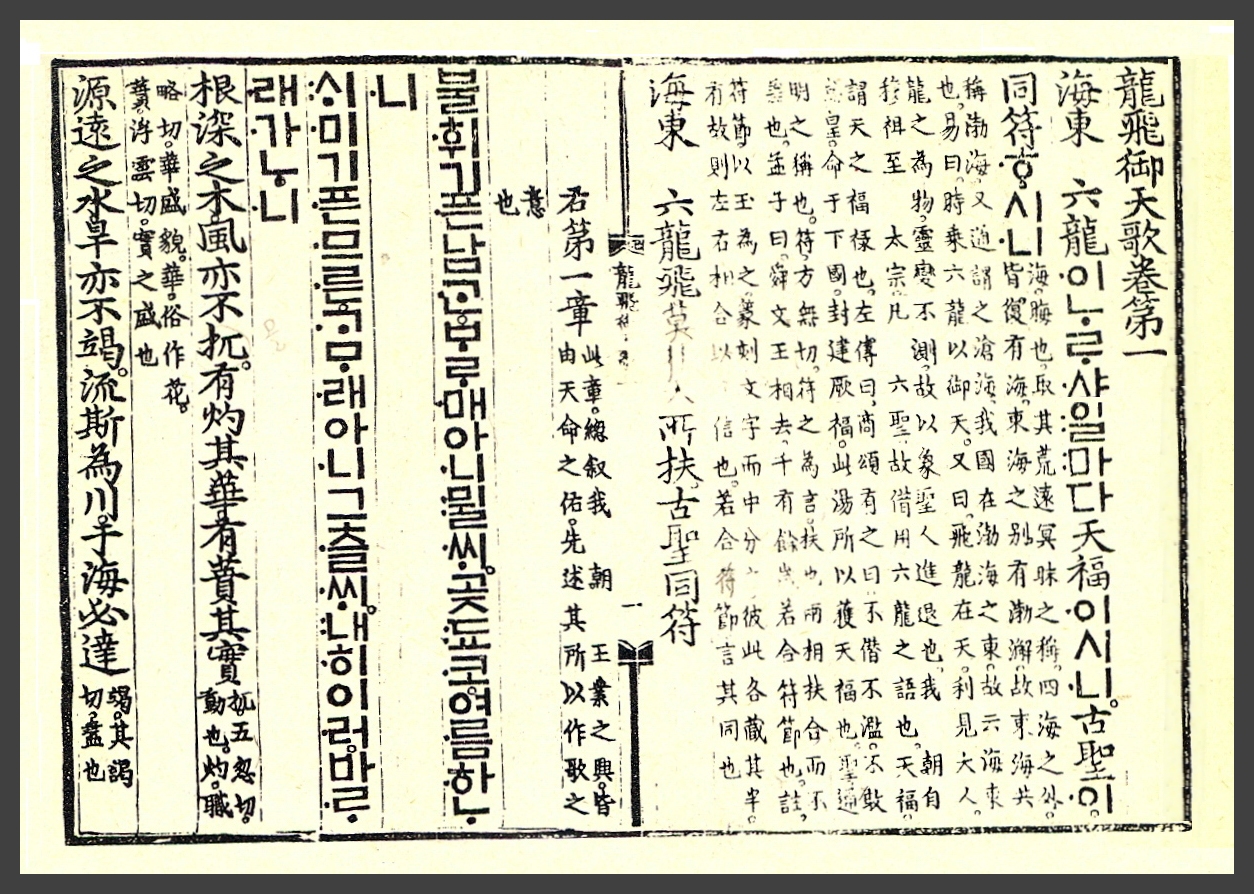 龍飛御天歌卷第一
海東 六龍이ᄂᆞᄅᆞ샤일마다天福이시니。古聖이
同符ᄒᆞ시니
海。晦也。取其荒遠冥昧之稱。四海之外。
皆復有海。東海之別有渤澥。故東海共
稱渤海。又通謂之滄海。我國在渤海之東。故云海東
也。易曰。時乘六龍以御天。又曰。飛龍在天。利見大人。
龍之為物。靈變不測。故以象聖人進退也。我 朝自
穆祖至 太宗。凡 六聖。故借用六龍之語也。天福。
謂天之福祿也。左傳曰。商頌有之曰。不僭不濫。不敢
皇。命于下國。封建厥福。此湯所以獲天福也。聖。通
明之稱也。符。方無切。符之為言扶也。兩相扶合而不
差也。孟子曰。舜文王相去。千有餘歲。若合符節也。註。
符節。以玉為之。篆刻文字而中分之。彼此各藏其半。
有故則左右相合以 信也。若合符節。言其同也
海東 六龍飛莫 天所扶。古聖同符
龍飛 一
右第一章
此章。總叙我 朝 王業之興。皆
由天命之佑。先述其所以作歌之
意
也
불휘기픈남ᄀᆞᆫᄇᆞᄅᆞ매아니뮐ᄊᆡ。곶됴코。여름하ᄂᆞ
니
ᄉᆡ미기픈므른ᄀᆞᄆᆞ래아니그츨ᄊᆡ。내히이러。바ᄅᆞ
래가ᄂᆞ니
根深之木。風亦不扤。有灼其華。有蕡其實
扤。五忽切。
動也。灼。職
略切。華盛貌。華。俗作花。
蕡。浮雲切。實之盛也
源遠之水。旱亦不竭。流斯為川。于海必達
竭。其謁
切。盡也